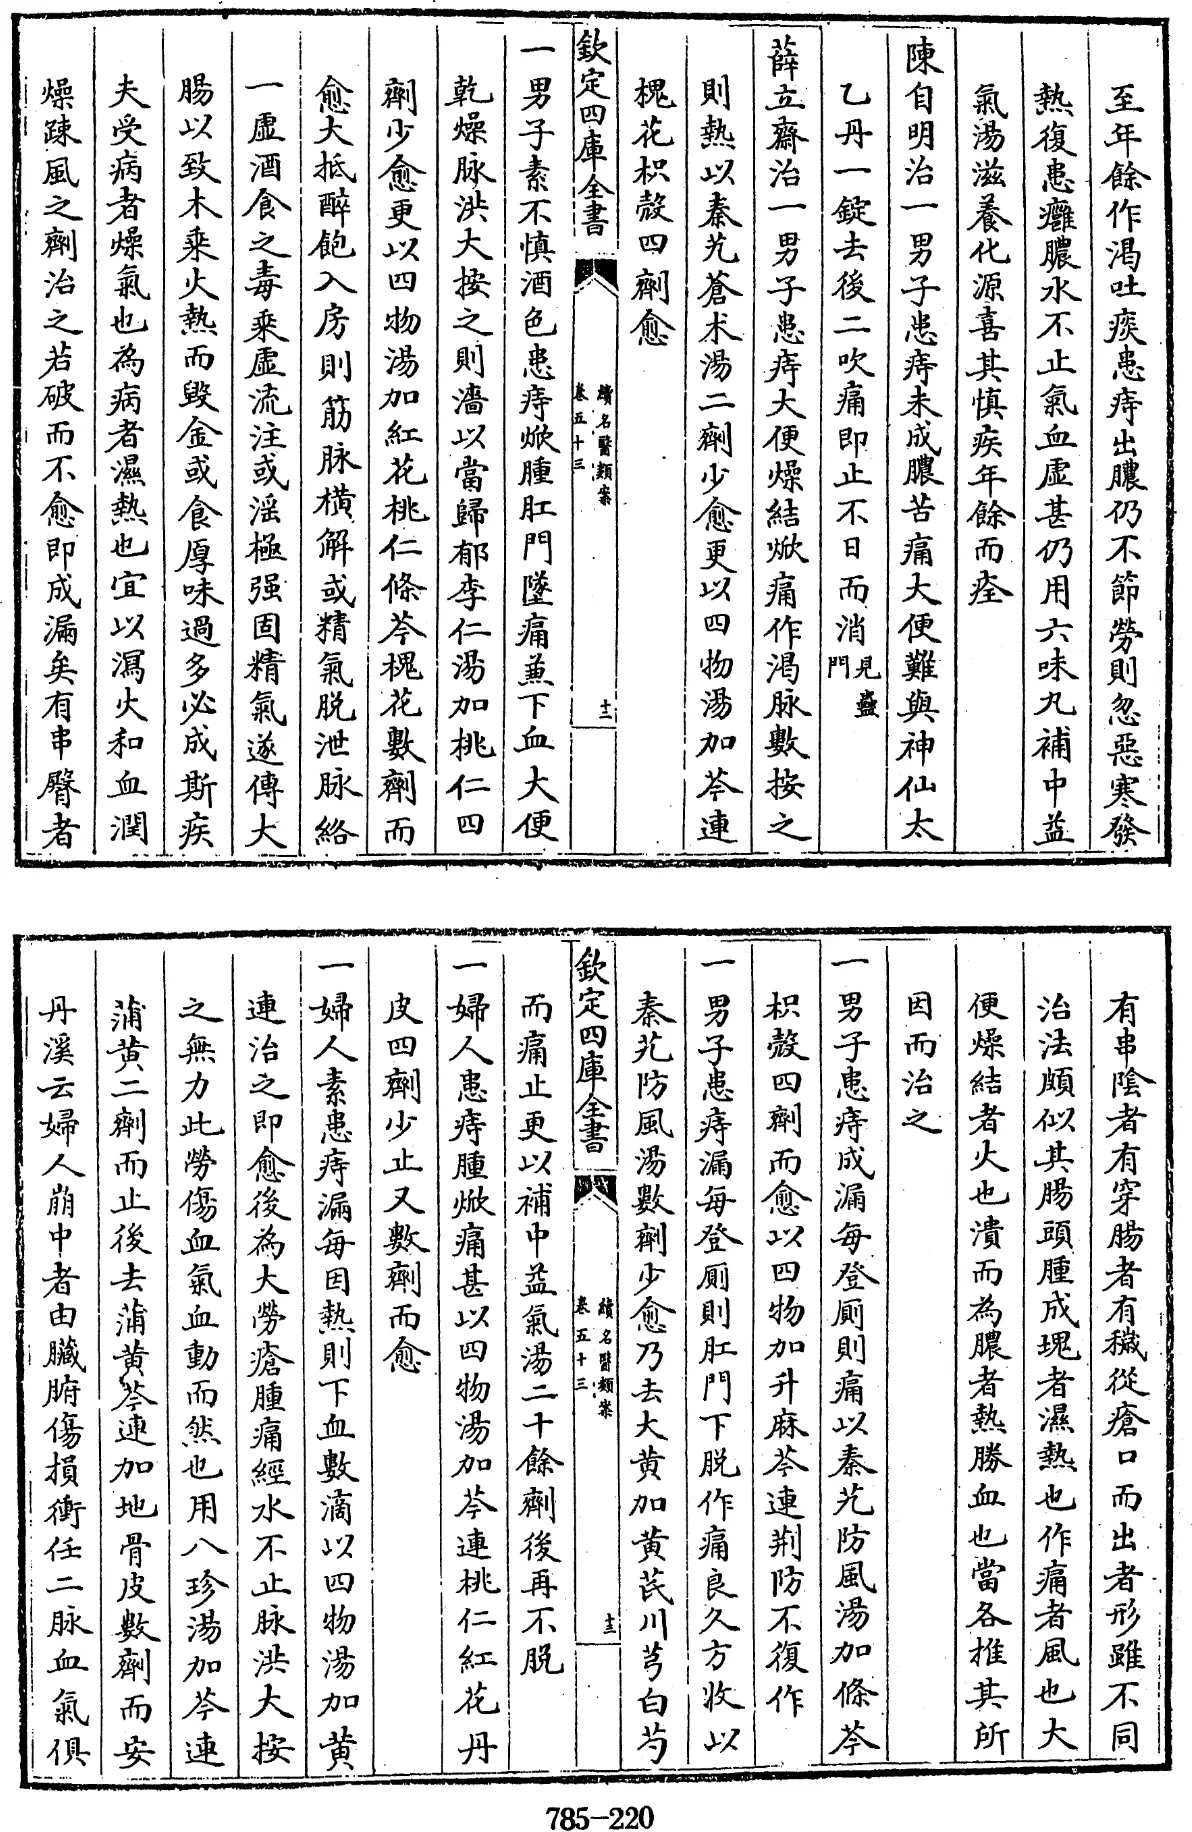 至年餘作渴吐痰患痔出膿仍不節勞則忽惡寒發
熱復患癰膿水不止氣血虛甚仍用六味丸補中益
氣湯滋養化源喜其慎疾年餘而痊
陳自明治一男子患痔未成膿苦痛大便難與神仙太
乙丹一錠去後二吹痛即止不日而消見蠱門
薛立齋治一男子患痔大便燥結焮痛作渴脉數按之
則熱以秦艽蒼朮湯二劑少愈更以四物湯加芩連
槐花枳殼四劑愈
欽定四庫全書
續名醫類案
卷五十三
十二
一男子素不慎酒色患痔焮腫肛門墜痛兼下血大便
乾燥脉洪大按之則濇以當歸郁李仁湯加桃仁四
劑少愈更以四物湯加紅花桃仁條芩槐花數劑而
愈大抵醉飽入房則筋脉橫解或精氣脱泄脉絡
一虛酒食之毒乘虛流注或淫極强固精氣遂傳大
腸以致木乘火熱而毀金或食厚味過多必成斯疾
夫受病者燥氣也為病者濕熱也宜以瀉火和血潤
燥踈風之劑治之若破而不愈即成漏矣有串臀者
有串陰者有穿腸者有穢從瘡口而出者形雖不同
治法頗似其腸頭腫成塊者濕熱也作痛者風也大
便燥結者火也潰而為膿者熱勝血也當各推其所
因而治之
一男子患痔成漏每登厠則痛以秦艽防風湯加條芩
枳殼四劑而愈以四物加升麻芩連荆防不復作
一男子患痔漏每登厠則肛門下脱作痛良久方收以
秦艽防風湯數劑少愈乃去大黄加黄芪川芎白芍
欽定四庫全書
續名醫類案
卷五十三
十三
而痛止更以補中益氣湯二十餘劑後再不脱
一婦人患痔腫焮痛甚以四物湯加芩連桃仁紅花丹
皮四劑少止又數劑而愈
一婦人素患痔漏每因熱則下血數滴以四物湯加黄
連治之即愈後為大勞瘡腫痛經水不止脉洪大按
之無力此勞傷血氣血動而然也用八珍湯加芩連
蒲黄二劑而止後去蒲黄芩連加地骨皮數劑而安
丹溪云婦人崩中者由臟腑傷損衝任二脉血氣俱
785-220